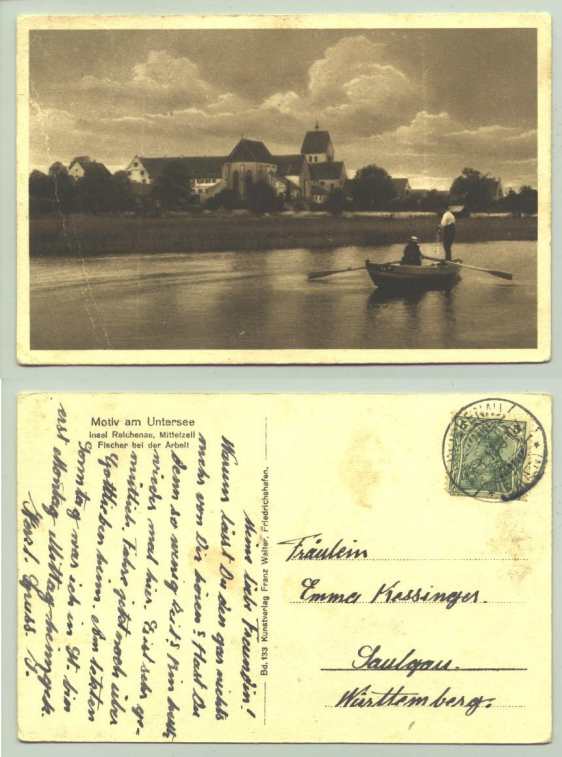 Motiv am Untersee
Insel Reichenau, Mittelzell
Fischer bei der Arbeit
Meine liebe Freundin!
Warum läßt Du den gar nichts
mehr von Dir hören? Hast Du
denn so wenig Zeit? Bin heute
wieder mal hier. Es ist sehr ge-
mütlich. Fahre jetzt noch über
Gottlieben heim. Am letzten
Sonntag war ich in St.
erst Montag Mittag heimgek.
Herzl. Gruss.
Bd. 133 Kunstverlag Franz Walter, Friedrichshafen.
Fräulein
Emma Kessinger.
Saulgau.
Württemberg.